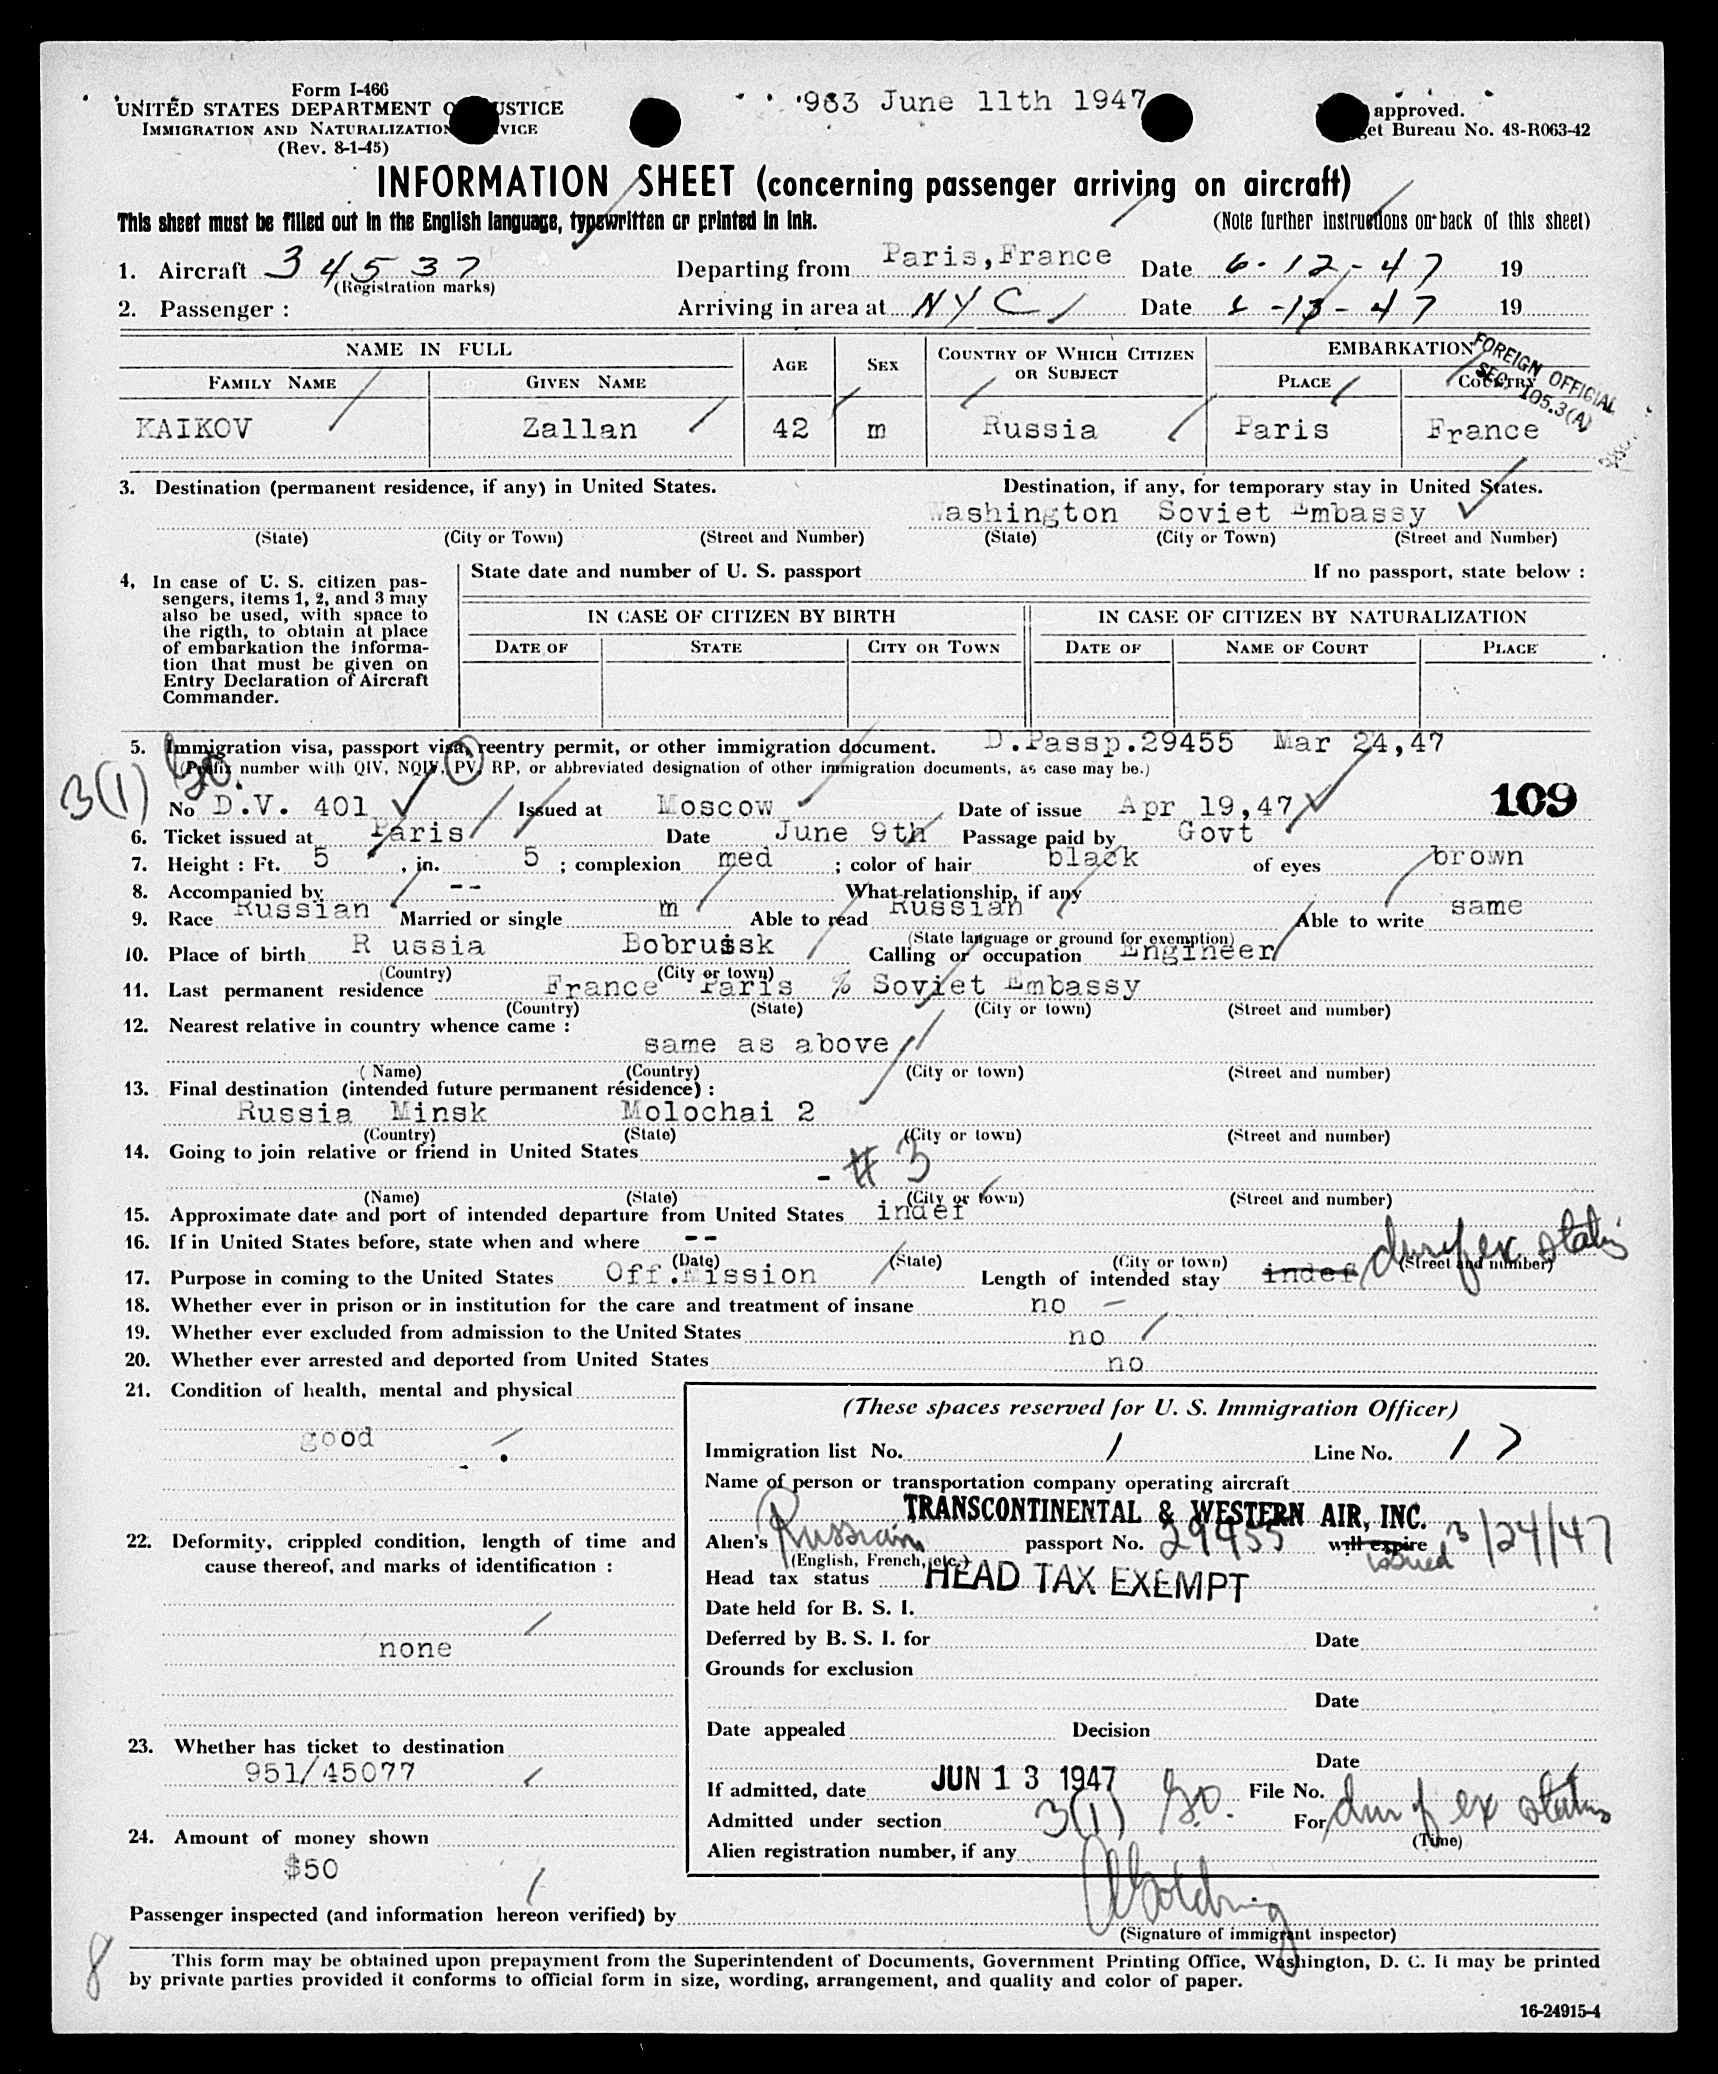 Form I-466
UNITED STATES DEPARTMENT O USTICE
IMMIGRATION AND NATURALIZATION VICE
(Rev. 8-1-45)
963 June 11th 1947
approved.
et Bureau No. 43-R063-42
INFORMATION SHEET (concerning passenger arriving on aircraft)
This sheet must be filled out in the English language, typewritten or printed in ink.
(Note further instructions on back of this sheet)
1. Aircraft 34537 Departing from Paris,France Date 6-12-47 19
(Registration marks)
2. Passenger : Arriving in area at NYC Date 6-13-47 19
NAME IN FULL AGE SEX COUNTRY OF WHICH CITIZEN OR SUBJECT EMBARKATION
FAMILY NAME GIVEN NAME PLACE COUNTRY
FOREIGN OFFICIAL
SEC. 105.3(A)
KAIKOV Zallan 42 m Russia Paris France
3. Destination (permanent residence, if any) in United States. Destination, if any, for temporary stay in United States.
Washington Soviet Embassy
(State) (City or Town) (Street and Number) (State) (City or Town) (Street and Number)
4, In case of U. S. citizen pas-
sengers, items 1, 2, and 3 may
also be used, with space to
the rigth, to obtain at place
of embarkation the informa-
tion that must be given on
Entry Declaration of Aircraft
Commander.
State date and number of U. S. passport If no passport, state below :
IN CASE OF CITIZEN BY BIRTH IN CASE OF CITIZEN BY NATURALIZATION
DATE OF STATE CITY OR TOWN DATE OF NAME OF COURT PLACE
5. Immigration visa, passport visa, reentry permit, or other immigration document. D.Passp.29455 Mar 24,47
(Prefix number with QIV, NQIV, PV, RP, or abbreviated designation of other immigration documents, as case may be.)
3(1)
No D.V. 401 Issued at Moscow Date of issue Apr 19,47
109
6. Ticket issued at Paris Date June 9th Passage paid by Govt
7. Height : Ft. 5 , in. 5 ; complexion med ; color of hair black of eyes brown
8. Accompanied by -- What relationship, if any
9. Race Russian Married or single m Able to read Russian Able to write same
(State language or ground for exemption)
10. Place of birth R ussia Bobruisk Calling or occupation Engineer
(Country) (City or town)
11. Last permanent residence France Paris % Soviet Embassy
(Country) (State) (City or town) (Street and number)
12. Nearest relative in country whence came :
same as above
(Name) (Country) (City or town) (Street and number)
13. Final destination (intended future permanent résidence) :
Russia Minsk Molochai 2
(Country) (State) (City or town) (Street and number)
14. Going to join relative or friend in United States
- # 3
(Name) (State) (City or town) (Street and number)
15. Approximate date and port of intended departure from United States indef
16. If in United States before, state when and where --
(Date) (State) (City or town) (Street and number)
17. Purpose in coming to the United States Off.Mission Length of intended stay indef dur of ex status
18. Whether ever in prison or in institution for the care and treatment of insane no -
19. Whether ever excluded from admission to the United States no
20. Whether ever arrested and deported from United States no
21. Condition of health, mental and physical
good
(These spaces reserved for U. S. Immigration Officer)
Immigration list No. 1 Line No. 17
Name of person or transportation company operating aircraft
TRANSCONTINENTAL & WESTERN AIR, INC.
22. Deformity, crippled condition, length of time and
cause thereof, and marks of identification :
none
Alien's Russian passport No. 29455 will expire issued 3/24/47
(English, French, etc.)
Head tax status HEAD TAX EXEMPT
Date held for B. S. I.
Deferred by B. S. I. for Date
Grounds for exclusion
Date
Date appealed Decision
Date
23. Whether has ticket to destination
951/45077
If admitted, date JUN 13 1947 File No.
Admitted under section 3(1) For dur of ex status
(Time)
Alien registration number, if any
24. Amount of money shown
$50
Passenger inspected (and information hereon verified) by
(Signature of immigrant inspector)
8
This form may be obtained upon prepayment from the Superintendent of Documents, Government Printing Office, Washington, D. C. It may be printed
by private parties provided it conforms to official form in size, wording, arrangement, and quality and color of paper.
16-24915-4